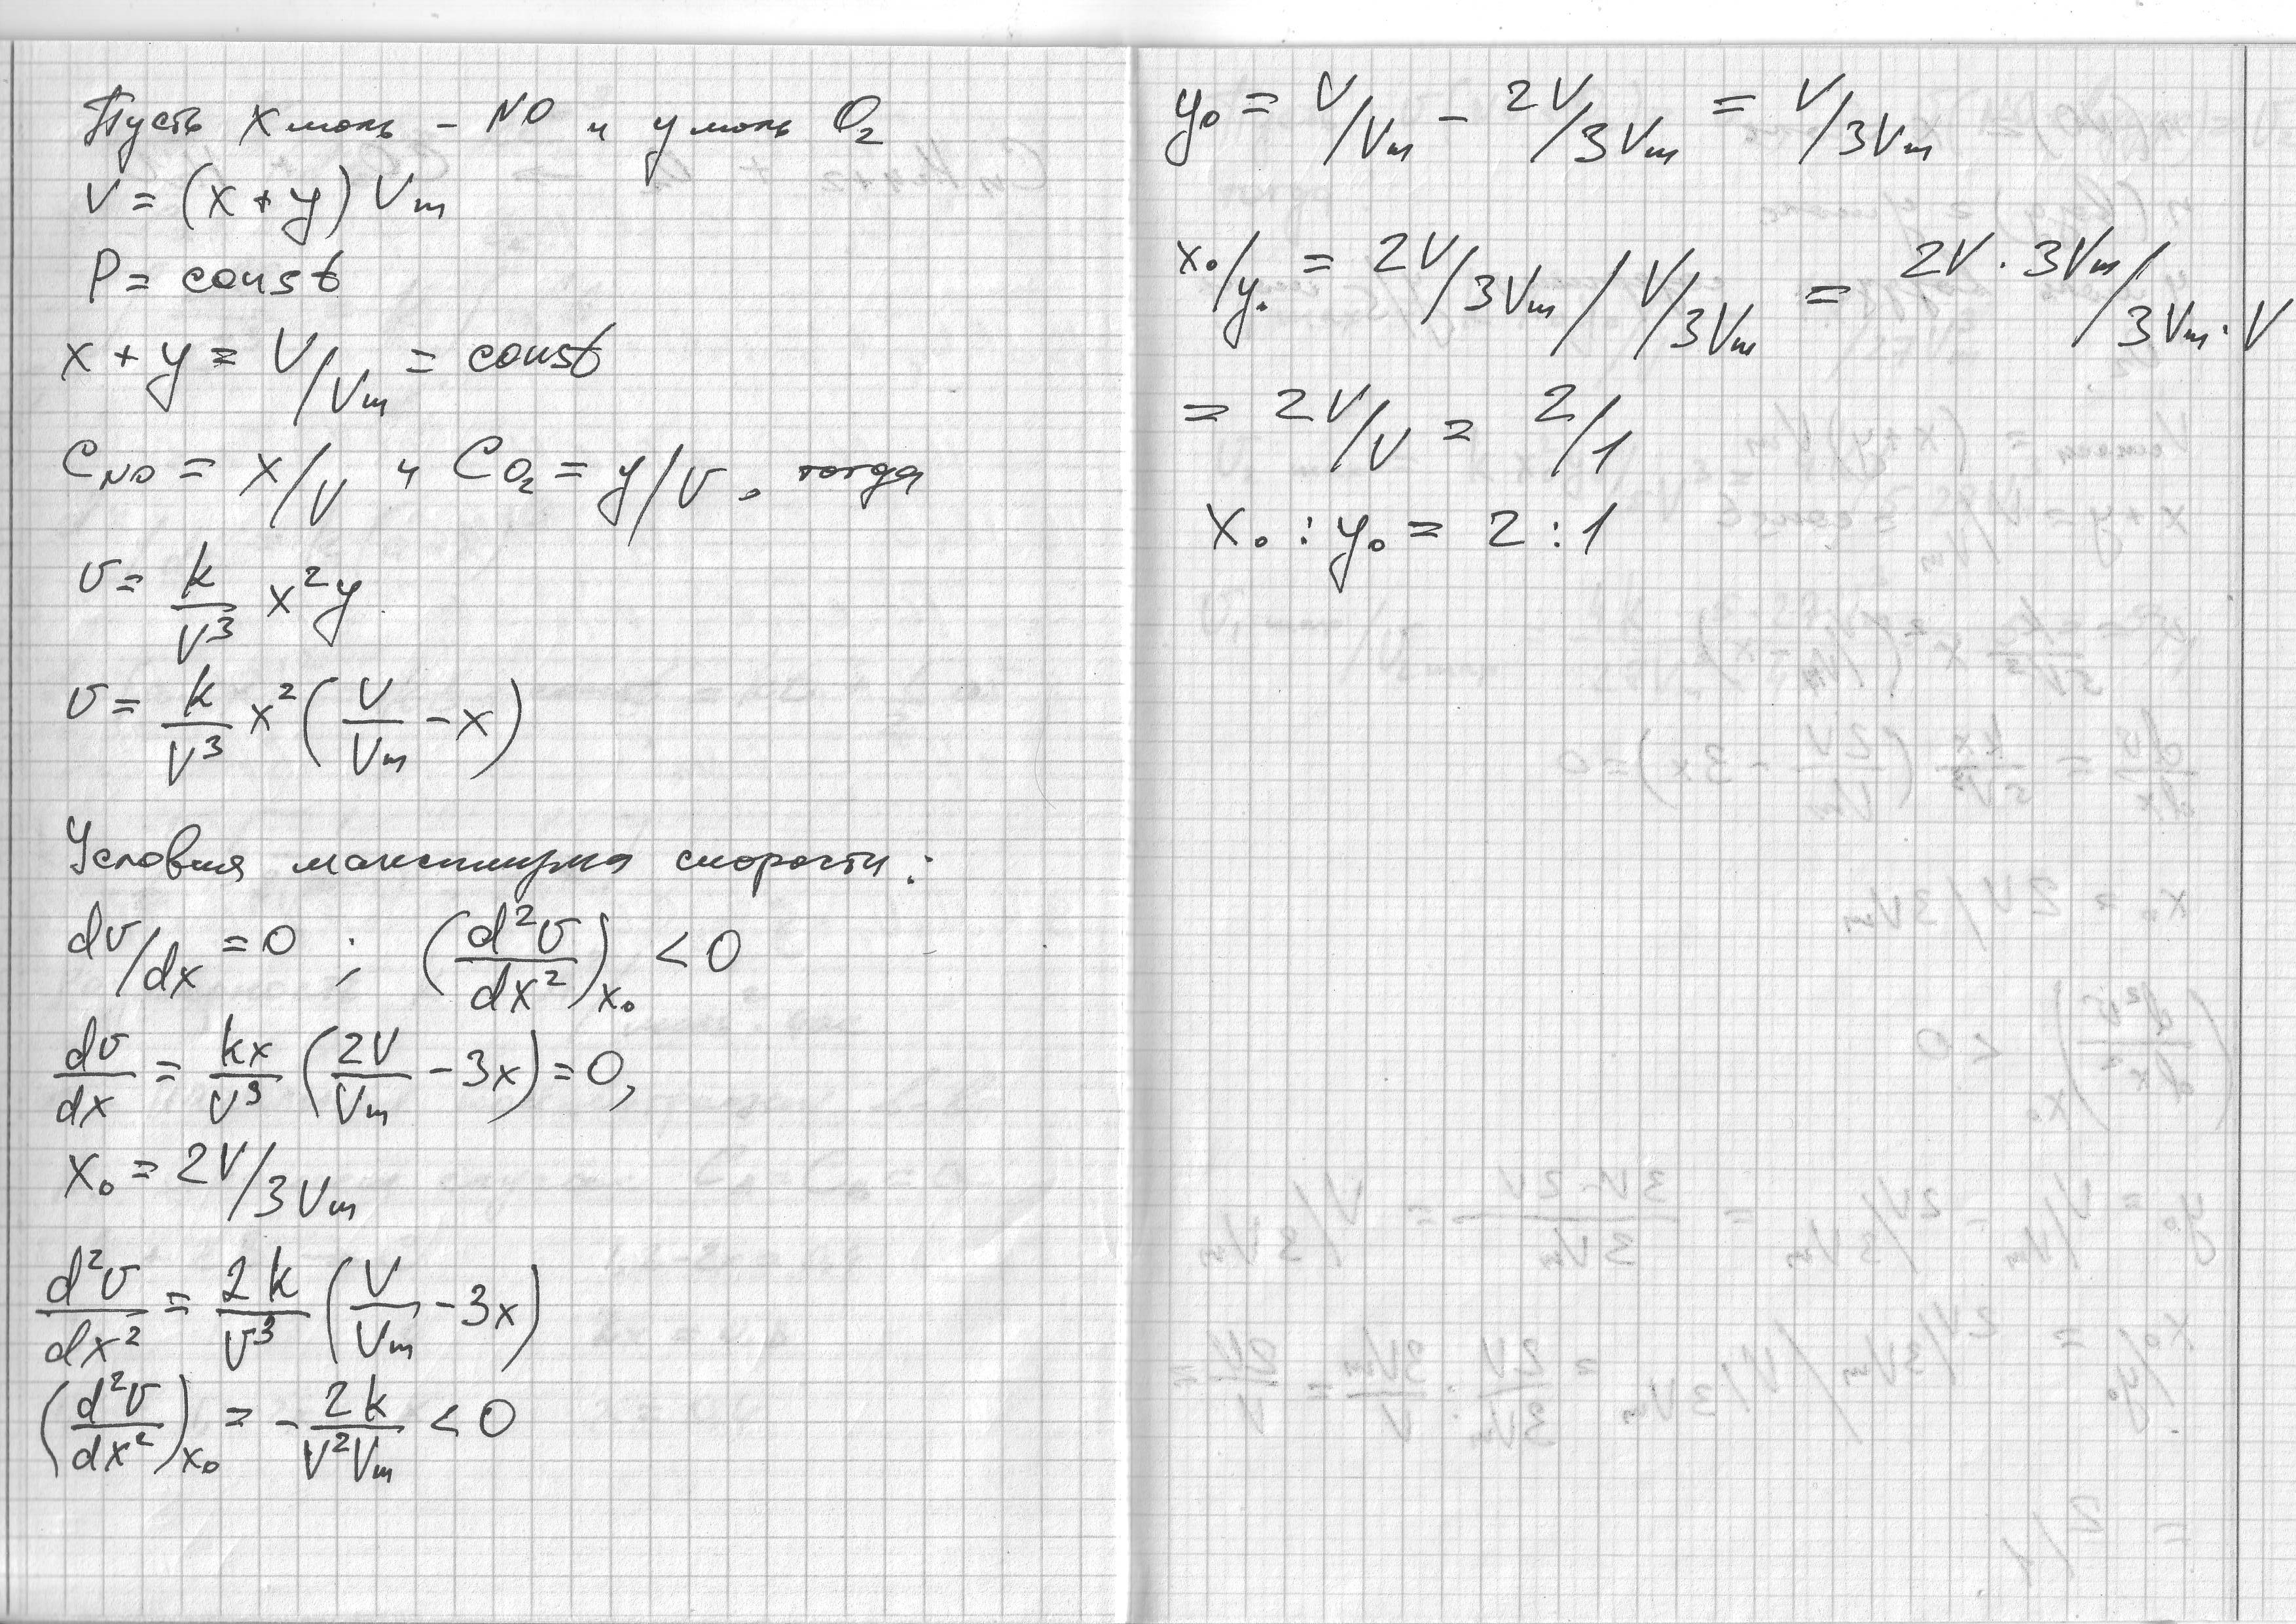 Пусть x моль - NO и y моль O₂
V = (x + y) Vm
P = const
x + y = V/Vm = const
C_NO = x/V и C_O₂ = y/V, тогда
v = k/V³ x²y
v = k/V³ x² (V/Vm - x)
Условия максимума скорости:
dv/dx = 0 ; (d²v/dx²)x₀ < 0
dv/dx = kx/V³ (2V/Vm - 3x) = 0,
x₀ = 2V/3Vm
d²v/dx² = 2k/V³ (V/Vm - 3x)
(d²v/dx²)x₀ = - 2k/V²Vm < 0
y₀ = V/Vm - 2V/3Vm = V/3Vm
x₀/y₀ = 2V/3Vm / V/3Vm = 2V · 3Vm/3Vm · V
= 2V/V = 2/1
x₀ : y₀ = 2 : 1